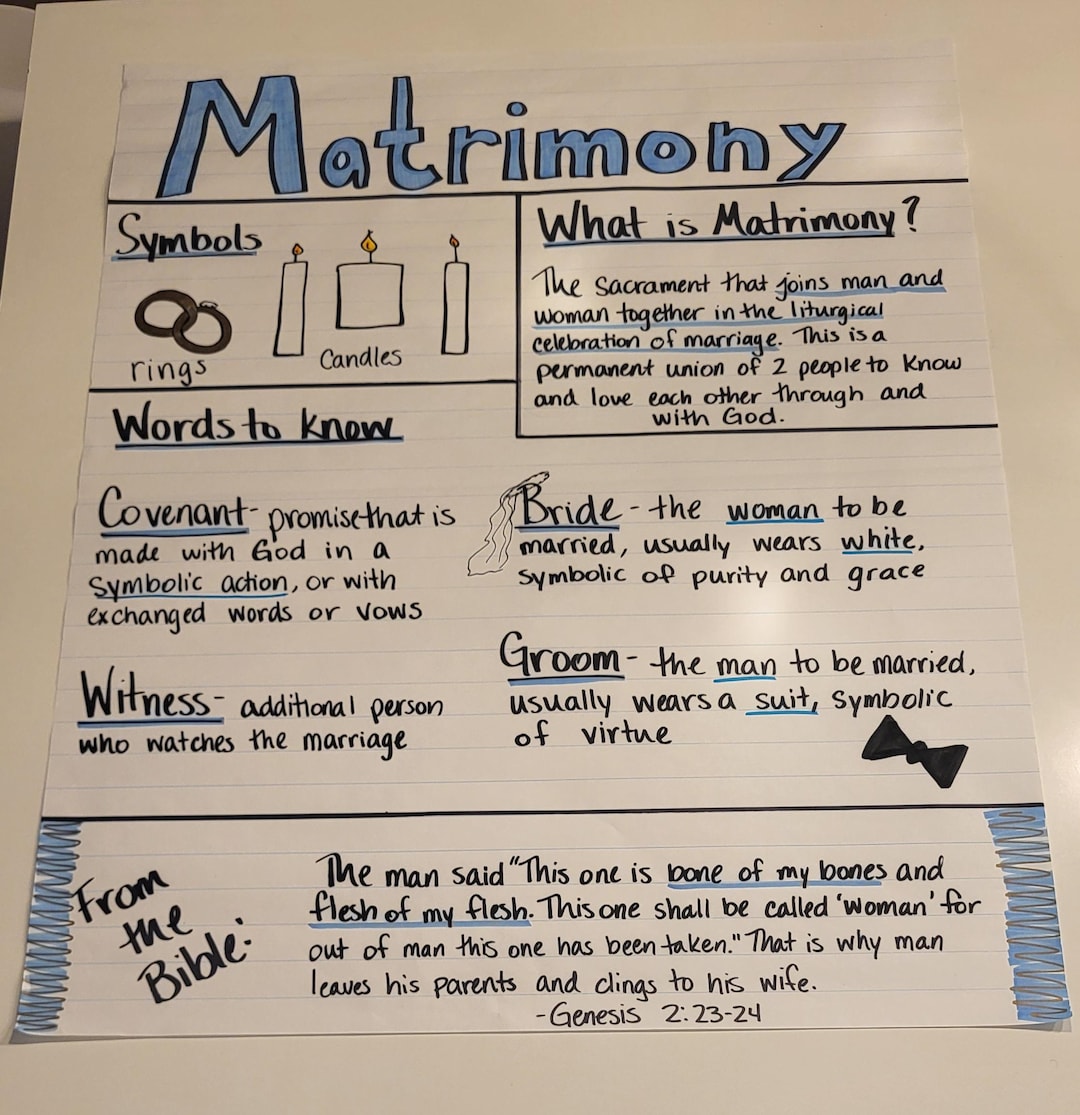 Matrimony
Symbols
rings
Candles
What is Matrimony?
The Sacrament that joins man and
woman together in the liturgical
celebration of marriage. This is a
permanent union of 2 people to know
and love each other through and
with God.
Words to know
Covenant- promise that is
made with God in a
symbolic action, or with
exchanged words or vows
Witness- additional person
who watches the marriage
Bride - the woman to be
married, usually wears white,
symbolic of purity and grace
Groom - the man to be married,
usually wears a suit, symbolic
of virtue
From
the
Bible:
The man said "This one is bone of my bones and
flesh of my flesh. This one shall be called 'woman' for
out of man this one has been taken." That is why man
leaves his parents and clings to his wife.
-Genesis 2:23-24